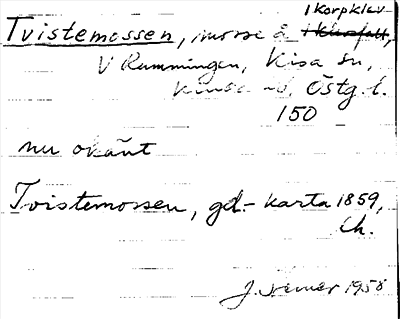 1 Korpklev
Tvistemossen, mosse å
V Rumningen, Kisa sn,
Kinda hd, Östg. l.
150
nu okänt
Tvistemossen, gd.- karta 1859,
Ch.
1958